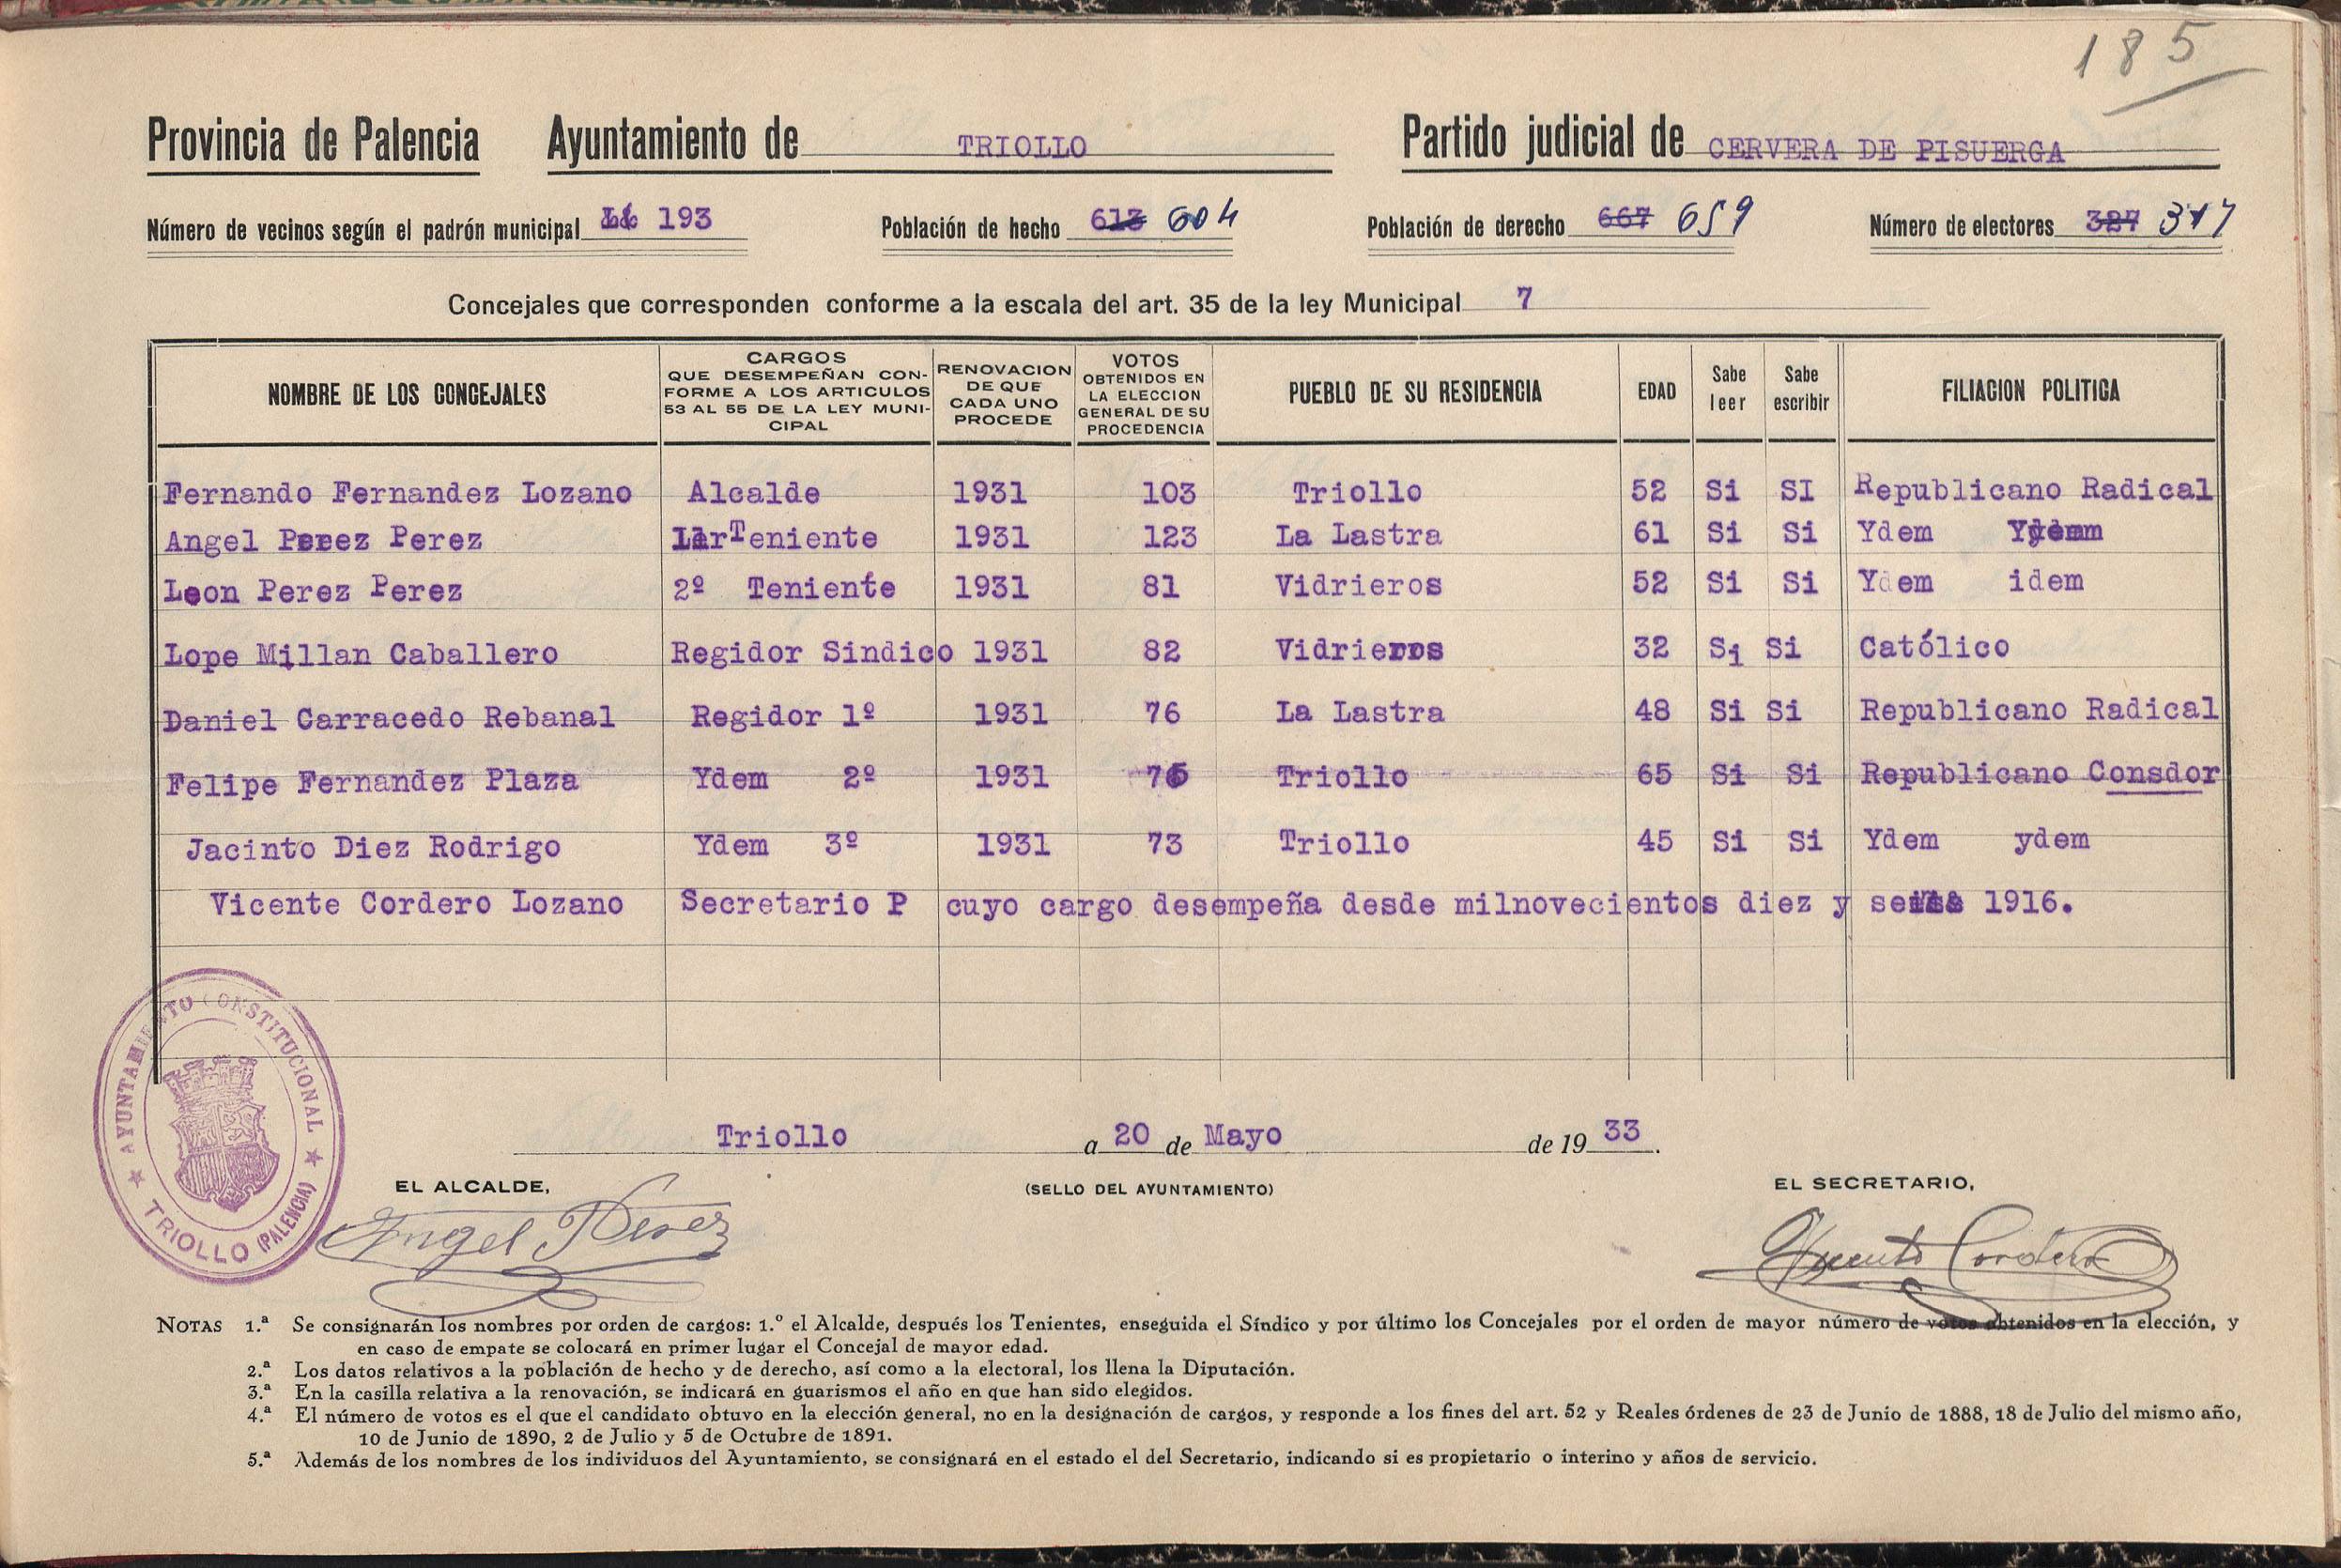 185
Provincia de Palencia Ayuntamiento de TRIOLLO Partido judicial de CERVERA DE PISUERGA
Número de vecinos según el padrón municipal 193 Población de hecho 613 604 Población de derecho 667 659 Número de electores 327 317
Concejales que corresponden conforme a la escala del art. 35 de la ley Municipal 7
NOMBRE DE LOS CONCEJALES
CARGOS
QUE DESEMPEÑAN CON-
FORME A LOS ARTICULOS
53 AL 55 DE LA LEY MUNI-
CIPAL
RENOVACION
DE QUE
CADA UNO
PROCEDE
VOTOS
OBTENIDOS EN
LA ELECCION
GENERAL DE SU
PROCEDENCIA
PUEBLO DE SU RESIDENCIA
EDAD
Sabe
leer
Sabe
escribir
FILIACION POLITICA
Fernando Fernandez Lozano Alcalde 1931 103 Triollo 52 Si SI Republicano Radical
Angel Perez Perez 1er Teniente 1931 123 La Lastra 61 Si Si Ydem Ydem
Leon Perez Perez 2º Teniente 1931 81 Vidrieros 52 Si Si Ydem idem
Lope Millan Caballero Regidor Sindico 1931 82 Vidrieros 32 Si Si Católico
Daniel Carracedo Rebanal Regidor 1º 1931 76 La Lastra 48 Si Si Republicano Radical
Felipe Fernandez Plaza Ydem 2º 1931 Triollo 65 Si Si Republicano Consdor
Jacinto Diez Rodrigo Ydem 3º 1931 73 Triollo 45 Si Si Ydem ydem
Vicente Cordero Lozano Secretario P cuyo cargo desempeña desde milnovecientos diez y seis 1916.
AYUNTAMIENTO CONSTITUCIONAL
TRIOLLO (PALENCIA)
Triollo a 20 de Mayo de 1933.
EL ALCALDE, (SELLO DEL AYUNTAMIENTO) EL SECRETARIO,
Angel Perez Vicente Cordero
NOTAS 1.ª Se consignarán los nombres por orden de cargos: 1.º el Alcalde, después los Tenientes, enseguida el Síndico y por último los Concejales por el orden de mayor número de votos obtenidos en la elección, y
en caso de empate se colocará en primer lugar el Concejal de mayor edad.
2.ª Los datos relativos a la población de hecho y de derecho, así como a la electoral, los llena la Diputación.
3.ª En la casilla relativa a la renovación, se indicará en guarismos el año en que han sido elegidos.
4.ª El número de votos es el que el candidato obtuvo en la elección general, no en la designación de cargos, y responde a los fines del art. 52 y Reales órdenes de 23 de Junio de 1888, 18 de Julio del mismo año,
10 de Junio de 1890, 2 de Julio y 5 de Octubre de 1891.
5.ª Además de los nombres de los individuos del Ayuntamiento, se consignará en el estado el del Secretario, indicando si es propietario o interino y años de servicio.